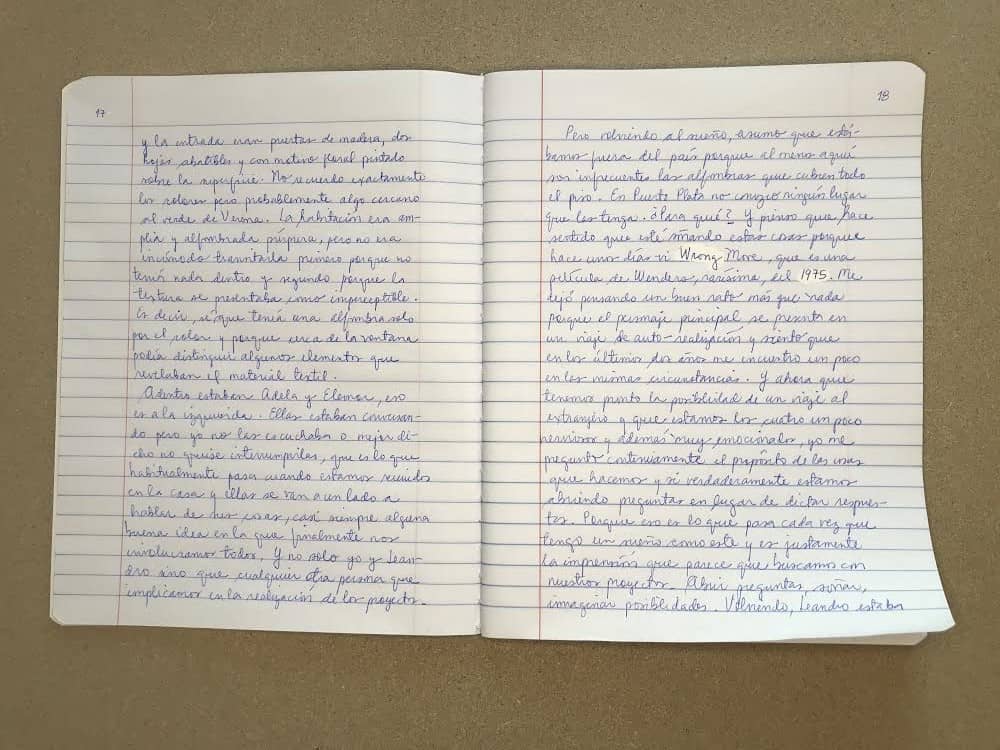 17
y la entrada eran puertas de madera, dos
hojas abatibles y con motivo floral pintado
sobre la superficie. No recuerdo exactamente
los colores pero probablemente algo cercano
al verde de Verona. La habitación era am-
plia y alfombrada púrpura, pero no era
incómodo transitarla primero porque no
tenía nada dentro y segundo porque la
textura se presentaba como imperceptible.
Es decir, sé que tenía una alfombra solo
por el color y porque cerca de la ventana
podía distinguir algunos elementos que
revelaban el material textil.
Adentro estaban Adela y Eleonor, eso
es a la izquierda. Ellas estaban conversan-
do pero yo no las escuchaba o mejor di-
cho no quise interrumpirlas, que es lo que
habitualmente pasa cuando estamos reunidos
en la casa y ellas se van a un lado a
hablar de sus cosas, casi siempre alguna
buena idea en la que finalmente nos
involucramos todos. Y no solo yo y Lean-
dro sino que cualquier otra persona que
implicamos en la realización de los proyectos.
18
Pero volviendo al sueño, asumo que está-
bamos fuera del país porque al menos aquí
son infrecuentes las alfombras que cubren todo
el piso. En Puerto Plata no conozco ningún lugar
que las tenga. ¿Para qué? Y pienso que hace
sentido que esté soñando estas cosas porque
hace unos días vi Wrong Move, que es una
película de Wenders, rarísima, del 1975. Me
dejó pensando un buen rato más que nada
porque el personaje principal se presenta en
un viaje de auto-realización y siento que
en los últimos dos años me encuentro un poco
en las mismas circunstancias. Y ahora que
tenemos pronto la posibilidad de un viaje al
extranjero y que estamos los cuatro un poco
nerviosos y además muy emocionados, yo me
pregunto continuamente el propósito de las cosas
que hacemos y si verdaderamente estamos
abriendo preguntas en lugar de dictar respues-
tas. Porque eso es lo que pasa cada vez que
tengo un sueño como este y es justamente
la impresión que parece que buscamos con
nuestros proyectos. Abrir preguntas, soñar,
imaginar posibilidades. Volviendo, Leandro estaba